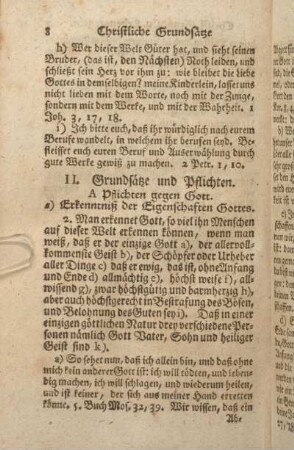 8 Christliche Grundsätze
h) Wer dieser Welt Güter hat, und sieht seinen
Bruder, (das ist, den Nächsten) Noth leiden, und
schließt sein Herz vor ihm zu: wie bleibet die Liebe
Gottes in demselbigen? meine Kinderlein, lasset uns
nicht lieben mit dem Worte, noch mit der Zunge,
sondern mit dem Werke, und mit der Wahrheit. 1
Joh. 3, 17, 18.
i) Ich bitte euch, daß ihr würdiglich nach eurem
Berufe wandelt, in welchem ihr berufen seyd. Be-
fleisset euch euren Beruf und Auserwählung durch
gute Werke gewiß zu machen. 2 Petr. 1, 10.
II. Grundsätze und Pflichten.
A Pflichten gegen Gott.
a) Erkenntniß der Eigenschaften Gottes.
2. Man erkennet Gott, so viel ihn Menschen
auf dieser Welt erkennen können, wenn man
weiß, daß er der einzige Gott a), der allervoll-
kommenste Geist b), der Schöpfer oder Urheber
aller Dinge c) daß er ewig, das ist, ohne Anfang
und Ende d) allmächtig e), höchst weise f), all-
wissend g), zwar höchstgütig und barmherzig h),
aber auch höchstgerecht in Bestrafung des Bösen,
und Belohnung des Guten sey i). Daß in einer
einzigen göttlichen Natur drey verschiedene Per-
sonen nämlich Gott Vater, Sohn und heiliger
Geist sind k).
a) So sehet nun, daß ich allein bin, und daß ohne
mich kein anderer Gott ist: ich will tödten, und leben-
dig machen, ich will schlagen, und wiederum heilen,
und ist keiner, der sich aus meiner Hand erretten
könne. 5. Buch Mos. 32, 39. Wir wissen, daß ein
Ab-